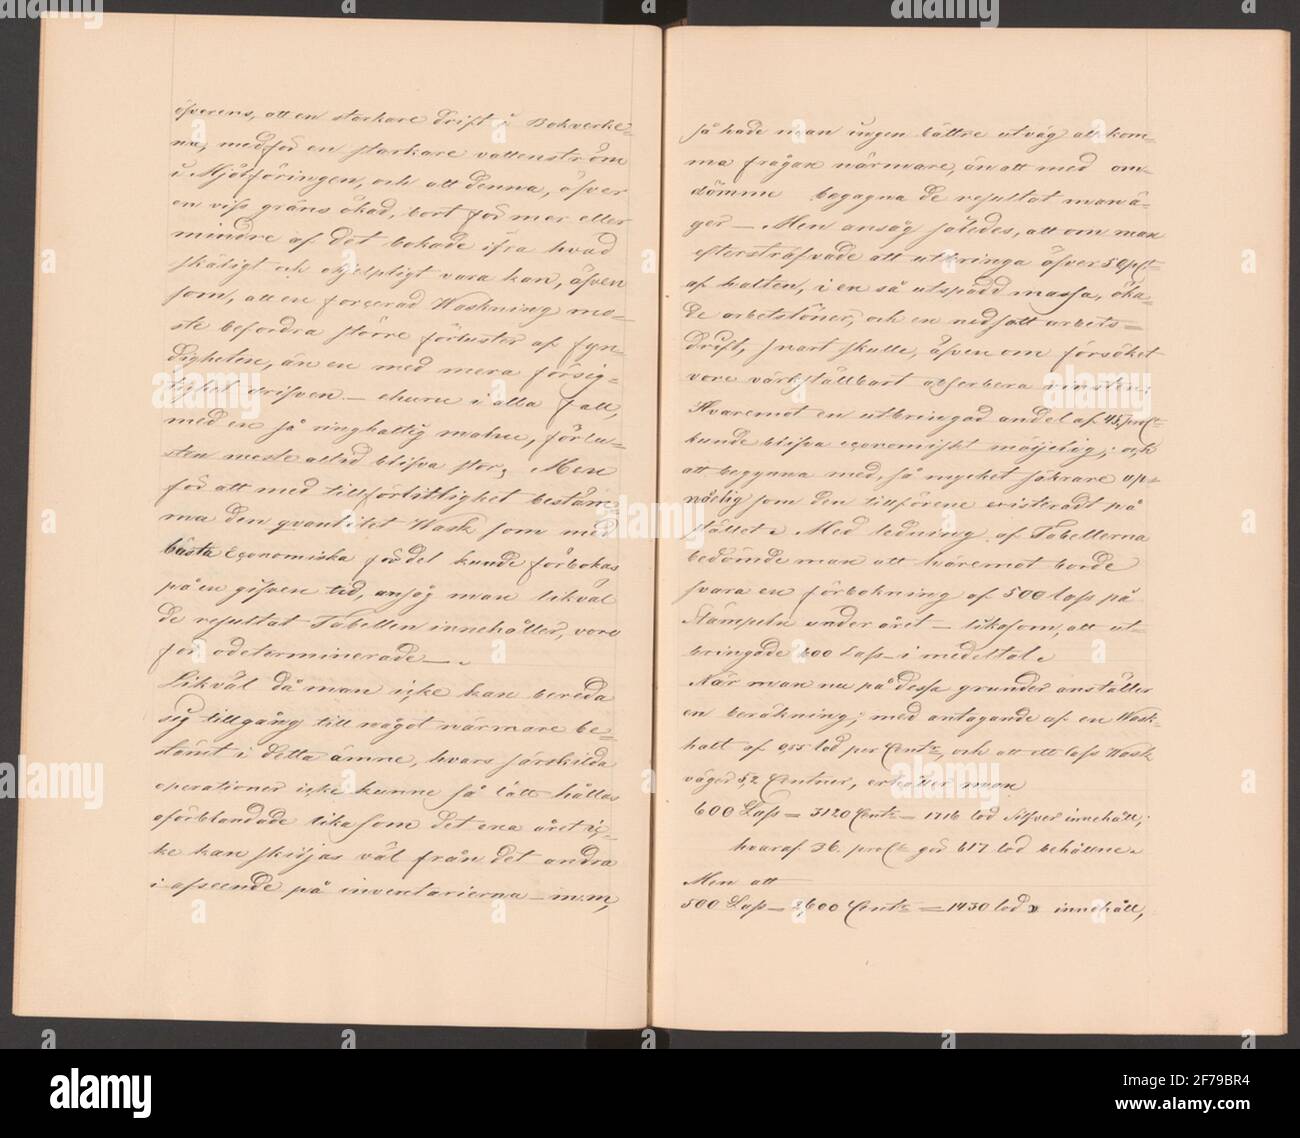 öfverens, att en starkare drift i Bokverke=
na, medför en starkare vattenström
i Mjölföringen, och att denna, öfver
en viss gräns ökad, bort för mer eller
mindre af det bokade ifra hvad
skäligt och hjelpligt vara kan, äfven
som, att en forcerad Waskning må-
ste befordra större förluster af fyn-
digheten, än en med mera försig-
tighet drifven — ehuru i alla fall,
med en så ringhaltig malm, förlu-
sten meste altid blifva stor; Men
för att med tillförlitlighet bestäm̄
ma den qvantitet Wask som med
bästa economiska fördel kunde förbokas
på en gifven tid, ansåg man likväl
de resultat Tabellen innehåller, vore
för odeterminerade —.
Likväl då man icke kan bereda
sig tillgång till något närmare be=
stämt i detta ämne, hvars särskilda
operationer icke kunne så lätt hållas
oförblandade lika som det ena året ic-
ke kan skiljas väl från det andra
i afseende på inventarierna — m.m,
så hade man ingen bättre utväg att kom-
ma frågan närmare, än att med om-
dömme begagna de resultat man ä-
ger — Men ansåg således, att om man
eftersträfvade att utbringa öfver 50 pct
af halten, i en så utspädd massa, öka-
de arbetslöner, och en nedsatt arbets=
drift, snart skulle, äfven om försöket
vore värkställbart absorbera vinsten;
Hvaremot en utbringad andel af 45 proCt
kunde blifva economiskt möjelig; och
att begynna med, så mycket säkrare up-
nåelig som den tillförene existeradt på
stället. Med ledning af Tabellerna
bedömde man att häremot borde
svara en förbokning af 500 lass på
Stämpeln under året — likasom, att ut-
bringade 600 Lass — i medeltal.
När man nu på dessa grunder anställer
en beräkning; med antagande af en Wask-
halt af 0,55 lod per Centr, och att ett lass Wask
väger 5,2 Centner, erhåller man
600 Lass = 3120 Centr = 1716 lod Silfver innehåll;
hvaraf 36 proCt gör 617 lod behållne.
Men att
500 Lass = 2,600 Centr = 1430 lod innehåll,